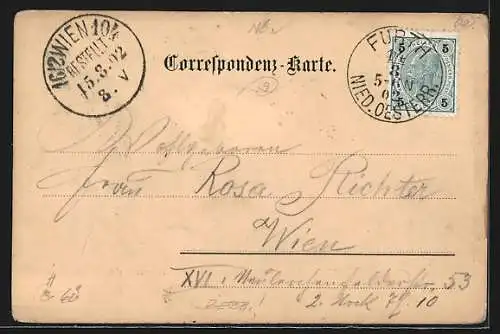 16/2 WIEN 104
BESTELLT
15.8.02
8. V
FURTH
NIED. OESTERR.
5 5
5 5
Correspondenz-Karte.
Wohlgeboren
Frau Rosa Richter
Wien
XVI. Neulerchenfelderstr 53
2. Stock 10